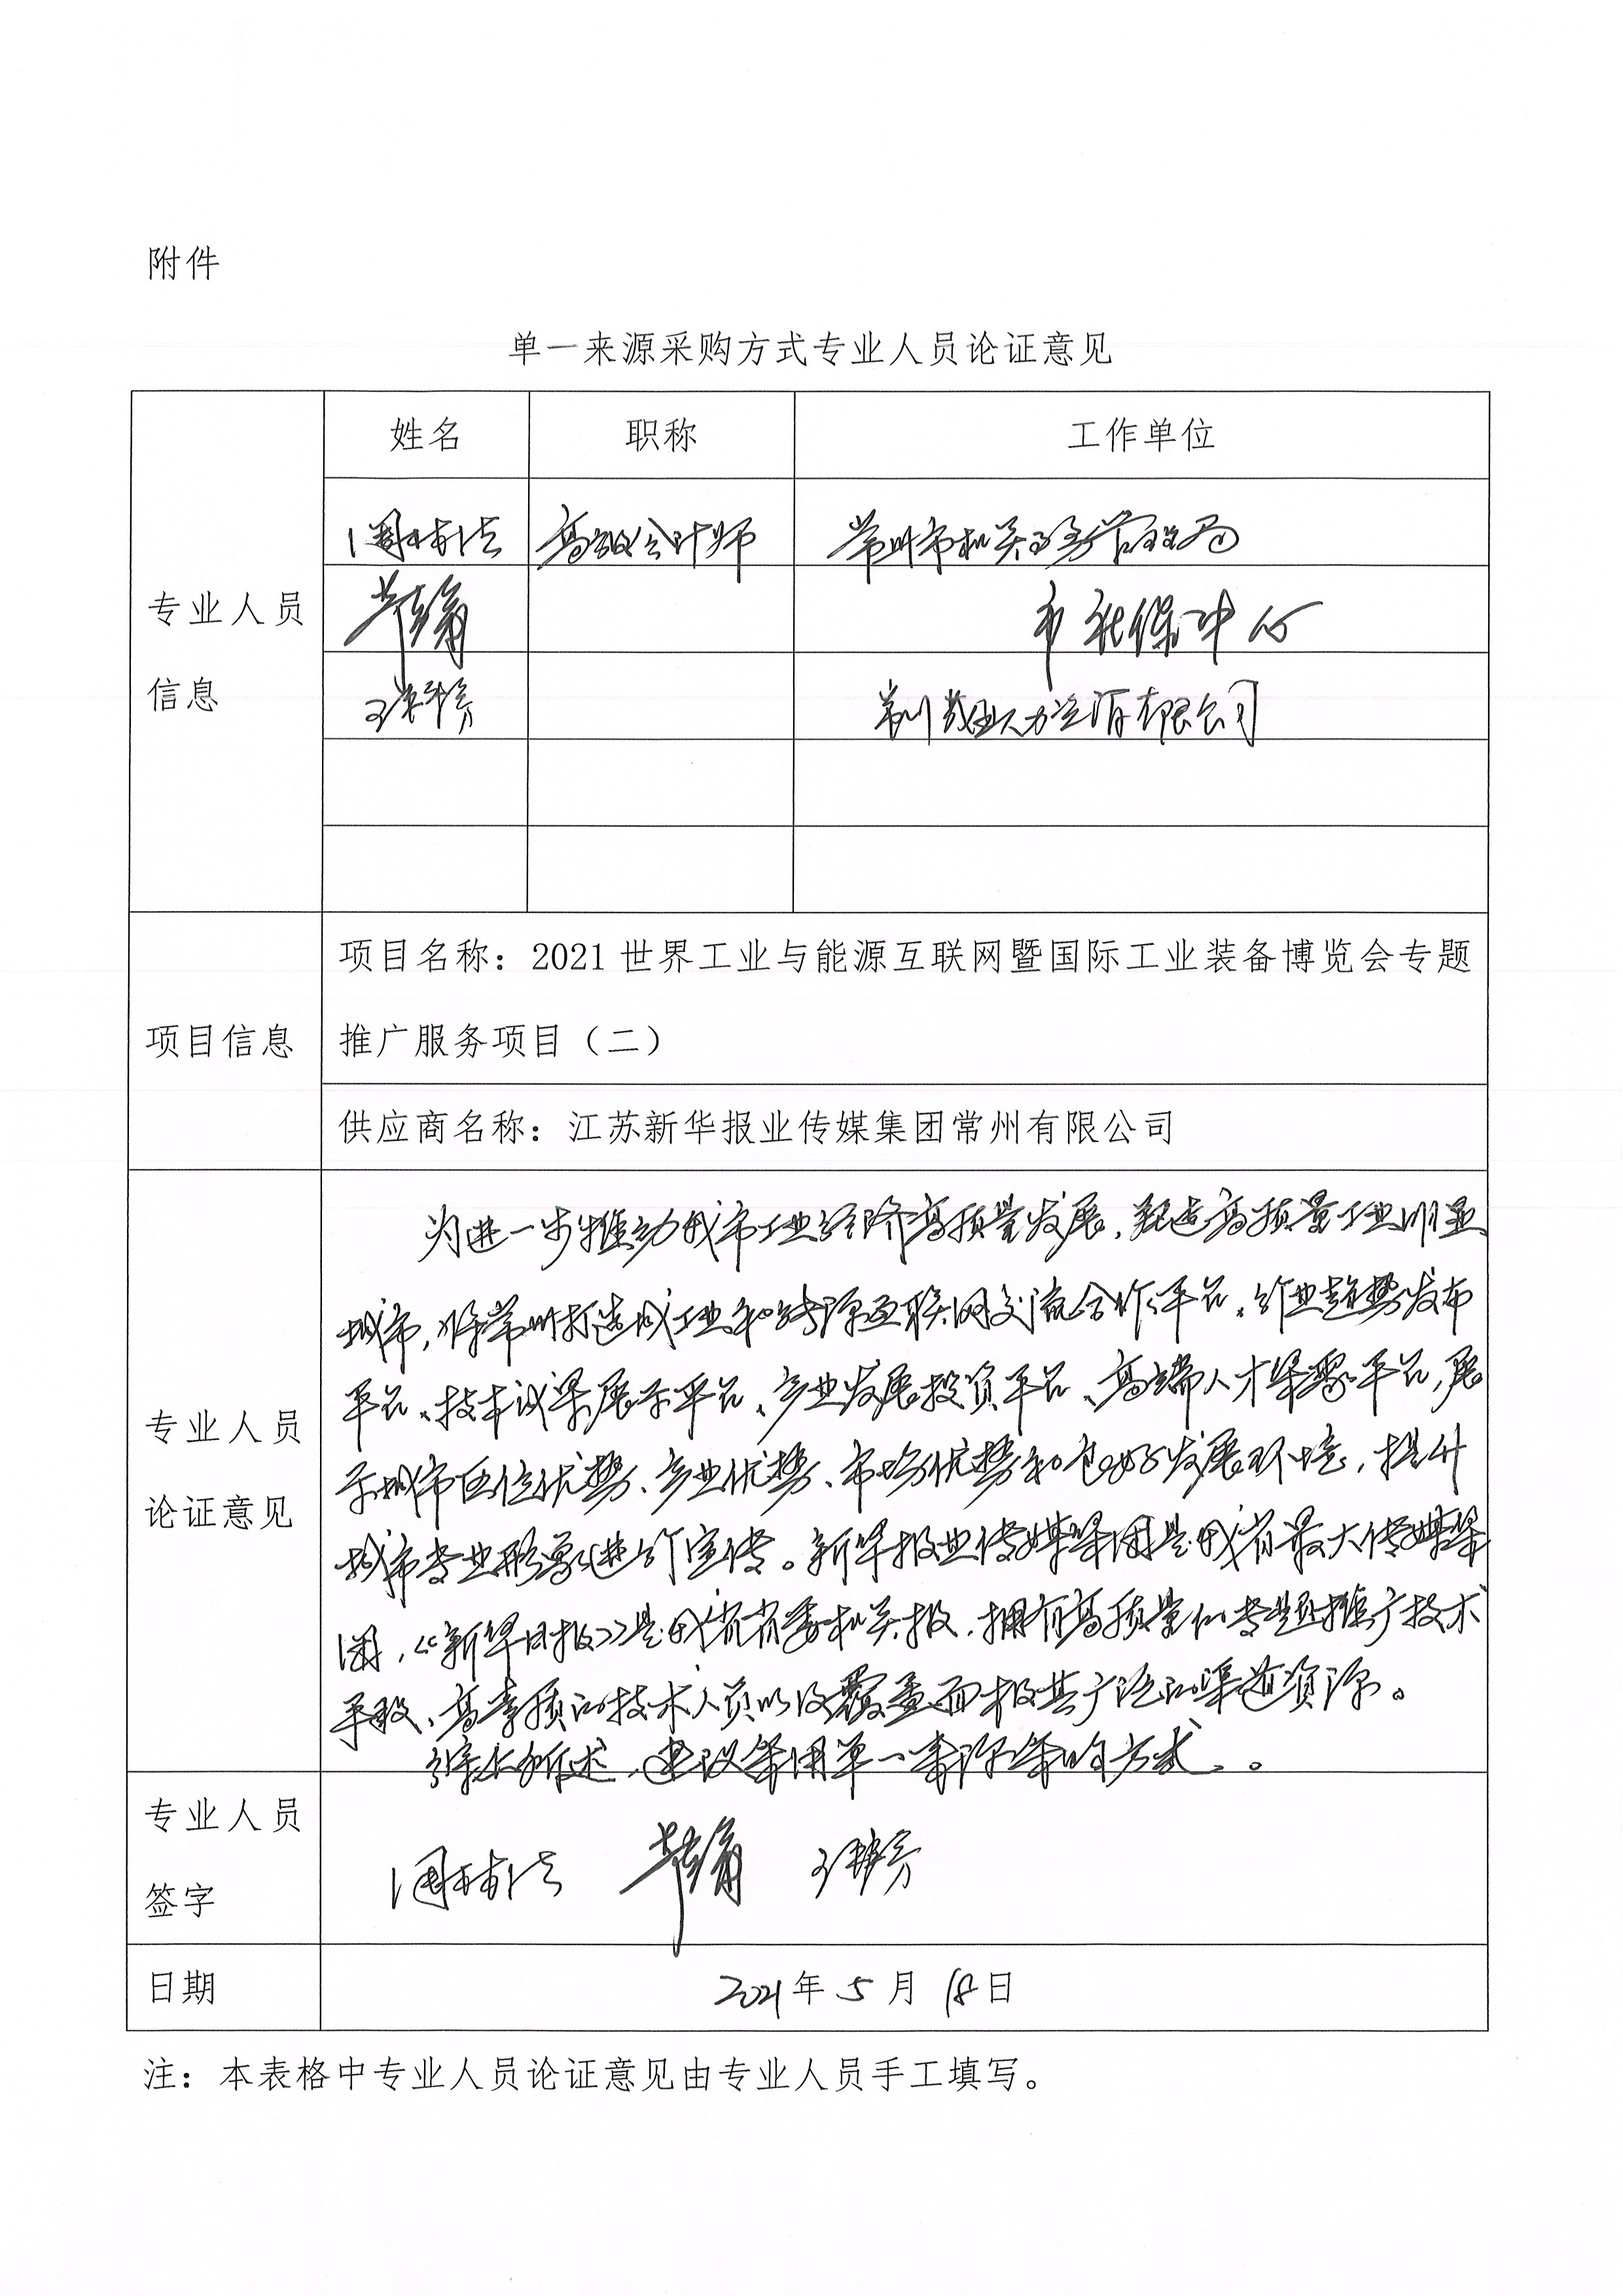 附件
单一来源采购方式专业人员论证意见
姓名 职称 工作单位
周林法 高级会计师 常州市机关事务管理局
市社保中心
常州 人力资源有限公司
专业人员
信息
项目名称：2021世界工业与能源互联网暨国际工业装备博览会专题
推广服务项目（二）
项目信息
供应商名称：江苏新华报业传媒集团常州有限公司
为进一步推动我市工业经济高质量发展，打造高质量工业明星
城市，将常州打造成工业和能源互联网交流合作平台、行业趋势发布
平台、技术成果展示平台、产业发展投资平台、高端人才集聚平台，展
示城市区位优势、产业优势、市场优势和良好发展环境，提升
城市专业形象进行宣传。新华报业传媒集团是我省最大传媒集
团，《新华日报》是我省省委机关报，拥有高质量的专题推广技术
手段、高素质的技术人员以及覆盖面极其广泛的渠道资源。
综上所述，建议采用单一来源采购方式。
专业人员
论证意见
专业人员
签字
周林法
日期 2021年5月18日
注：本表格中专业人员论证意见由专业人员手工填写。